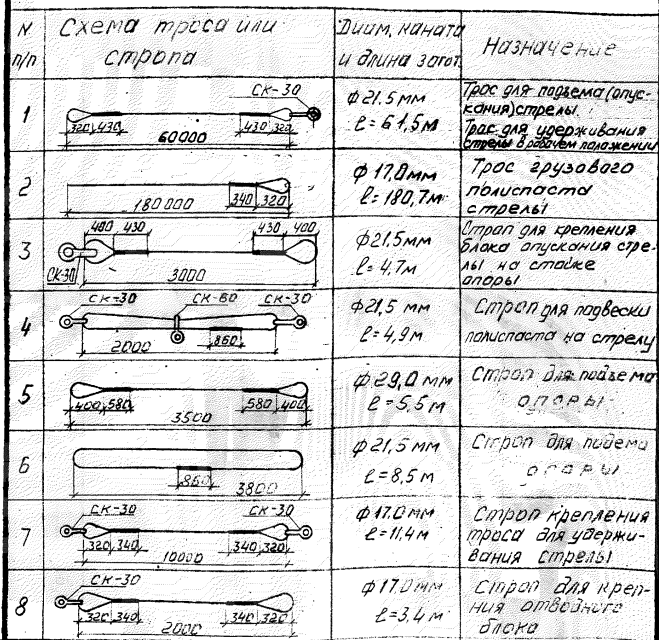 N п/п
Схема троса или стропа
Диам. каната и длина загот.
Назначение
1
СК-30
320 430
430 320
60000
ф21.5мм
ℓ=61,5м
Трос для подъема (опускания) стрелы.
Трос для удерживания стрелы в рабочем положении
2
340 320
180000
ф17.0мм
ℓ=180,7м
Трос грузового
полиспаста
стрелы
3
400 430
430 400
СК-30
3000
ф21.5мм
ℓ=4,7м
Строп для крепления
блока опускания стре-
лы на стойке
опоры
4
СК-30
СК-60
СК-30
2000
860
ф21,5 мм
ℓ=4,9м
Строп для подвески
полиспаста на стрелу
5
400 580
580 400
3500
ф29,0 мм
ℓ=5,5м
Строп для подъема
опоры
6
860
3800
ф21,5 мм
ℓ=8,5м
Строп для
опоры
7
СК-30
СК-30
320 340
340 320
10000
ф17.0мм
ℓ=11,4м
Строп крепления
троса для удержи-
вания стрелы
8
СК-30
320 340
340 320
2000
ф17.0мм
ℓ=3,4м
Строп для креп-
ния отводного
блока